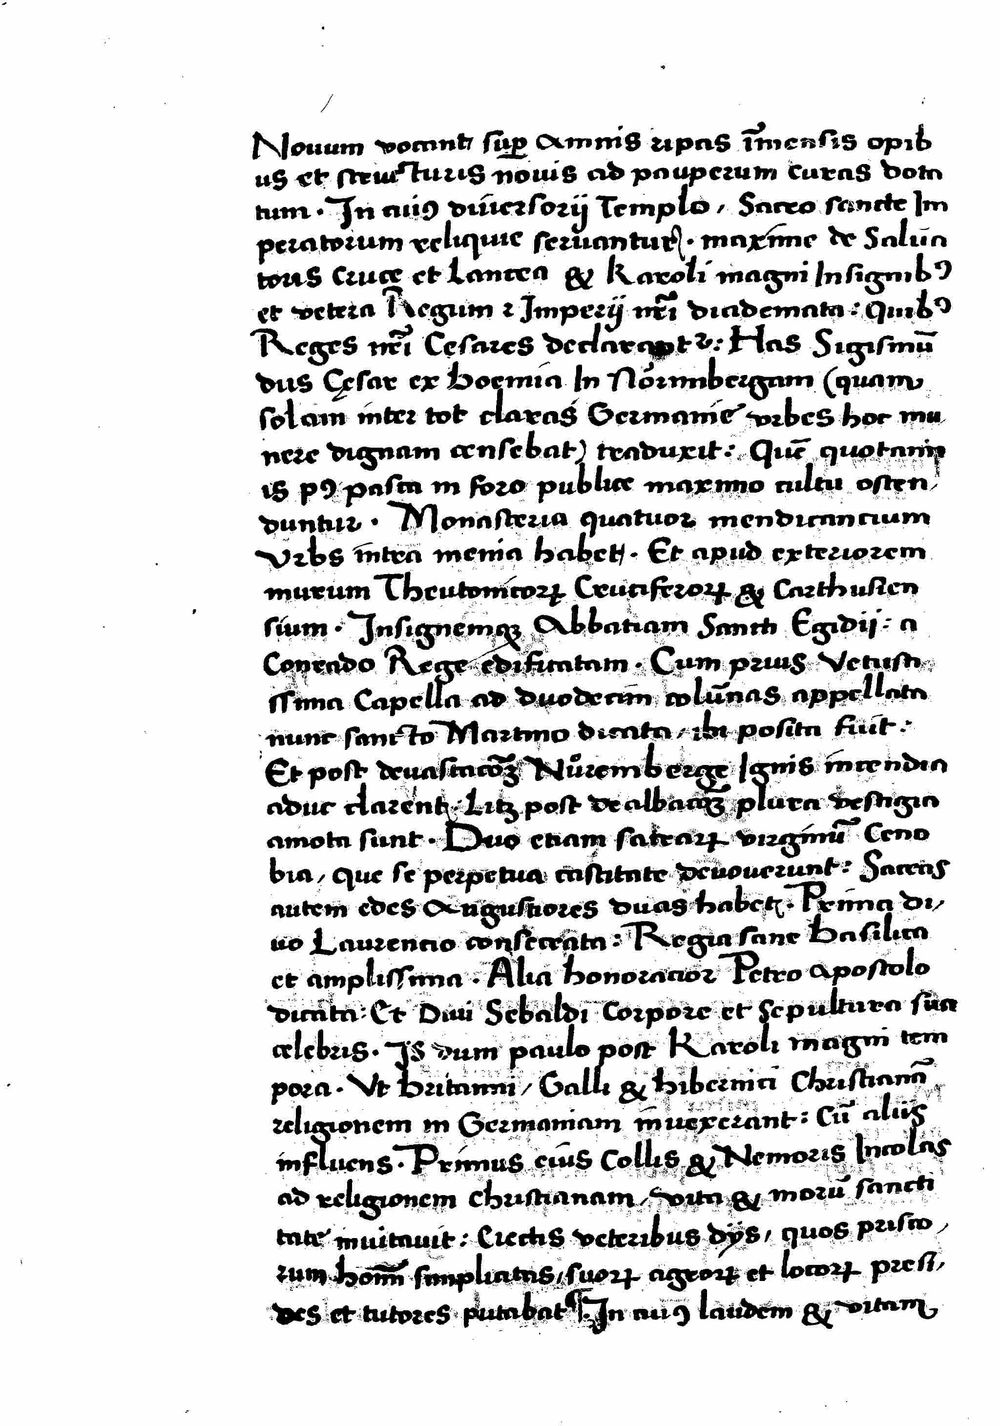 Nouum vocant sup̲ Amnis ripas īmensis opib
us et structuris nouis ad pauperum curas dota
tum · In cuiꝰ diuersorij Templo / Sacro sancte Im
peratorum reliquie seruantur · maxime de Salua
toris Cruce et Lancea & Karoli magni Insignibꝰ
et vetera Regum ⁊ Imperij nr̄i diademata : Quibꝰ
Reges nr̄i Cesares declarant~ : Has Sigismū
dus Cęsar ex boemia In Nörmbergam (quam
solam inter tot claras Germanie vrbes hoc mu
nere dignam censebat) traduxit : Que quotann
is pꝰ pasca in foro publice maximo cultu osten /
duntur · Monasteria quatuor mendicancium
Vrbs intra menia habet · Et apud exteriorem
murum Theutonicoꝝ Crutiferoꝝ & Carthusien
sium · Insignemqꝫ Abbatiam Sancti Egidij : a
Conrado Rege edificatam · Cum prius Vetusti
ssima Capella ad duodecim colūnas appellata
nunc sancto Martino dicata / ibi posita fuit :
Et post deuastacōꝫ Nůremberge Ignis incendia
aduc clarent · Litꝫ post dealbacōꝫ plura vestigia
amota sunt · Duo etiam sacraꝝ virginū Ceno
bia / que se perpetua castitate deuouerunt : Sacras
autem edes Augustiores duas habet · Prima di /
uo Laurencio consecrata : Regia sane basilica
et amplissima · Alia honoracior Petro apostolo
dicata : Et Diui Sebaldi Corpore et sepultura sua
celebris · Is dum paulo post Karoli magni tem
pora · Vt britanni / Galli & hibernici Christianā
religionem in Germaniam inuexerant : Cū alijs
influens · Primus eius Collis & Nemoris Incolas
ad religionem christianam / vita & morū sancti
tate inuitauit : Eiectis veteribus dijs / quos prisco /
rum hoīm simplicitas / suoꝝ agroꝝ et locoꝝ presi /
des et tutores putabat ¶ · In cuiꝰ laudem & vitam